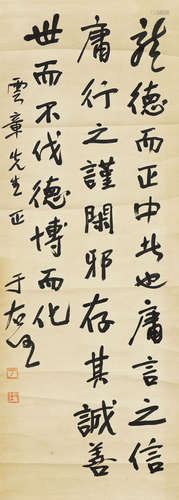 龍德而正中者也庸言之信
庸行之謹閑邪存其誠善
世而不伐德博而化
雲章先生正
于右任